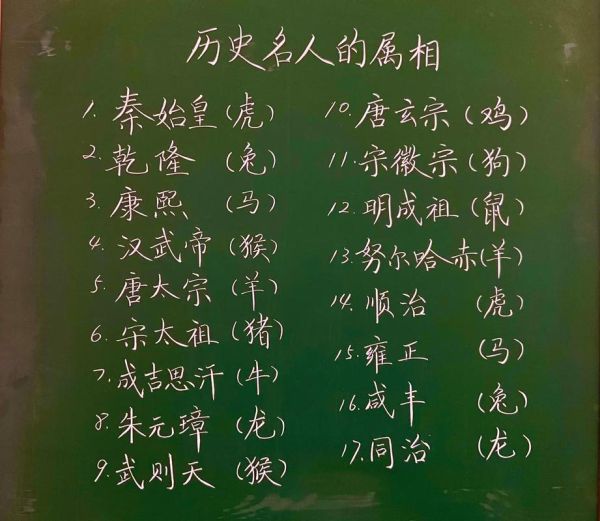 历史名人的属相
1. 秦始皇(虎)
2. 乾隆 (兔)
3. 康熙 (马)
4. 汉武帝(猴)
5. 唐太宗(羊)
6. 宋太祖(猪)
7. 成吉思汗(牛)
8. 朱元璋 (龙)
9. 武则天 (猴)
10. 唐玄宗(鸡)
11. 宋徽宗(狗)
12. 明成祖(鼠)
13. 努尔哈赤(羊)
14. 顺治 (虎)
15. 雍正 (马)
16. 咸丰 (兔)
17. 同治 (龙)